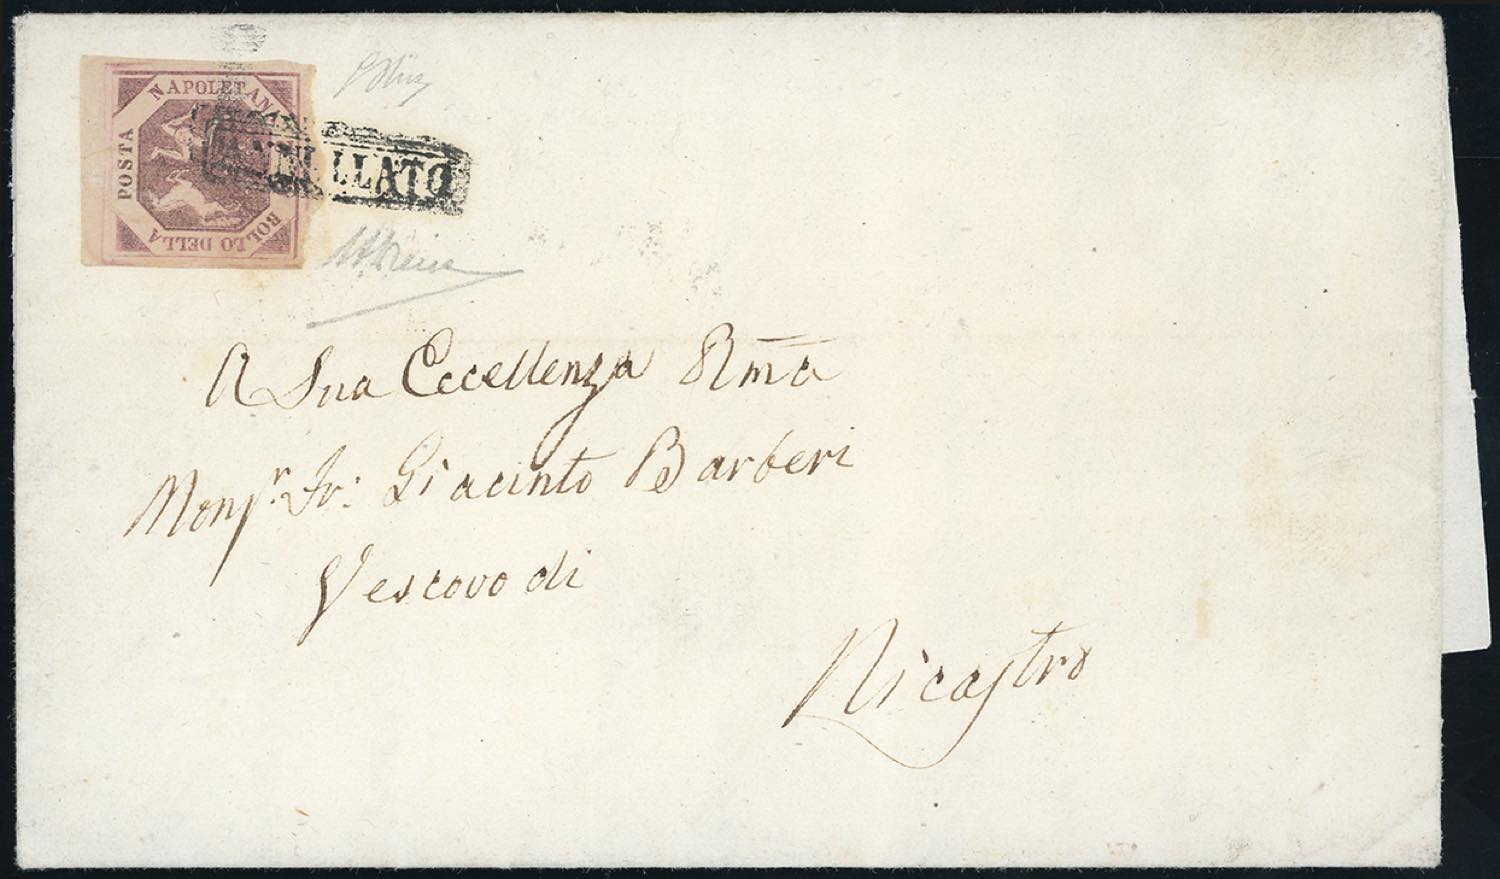 BOLLO DELLA
POSTA
NAPOLETANA
ANNULLATO
A Sua Eccellenza Rma
Monsr Fr: Giacinto Barberi
Vescovo di
Nicastro